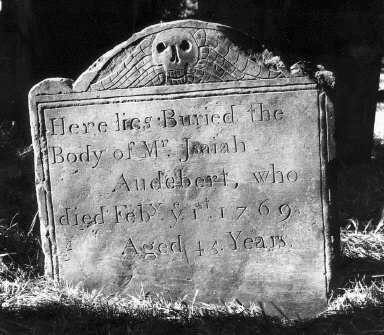 Here lies Buried the
Body of Mr. Isaiah
Audebert, who
died Feby. ye 1st. 1769.
Aged Years.